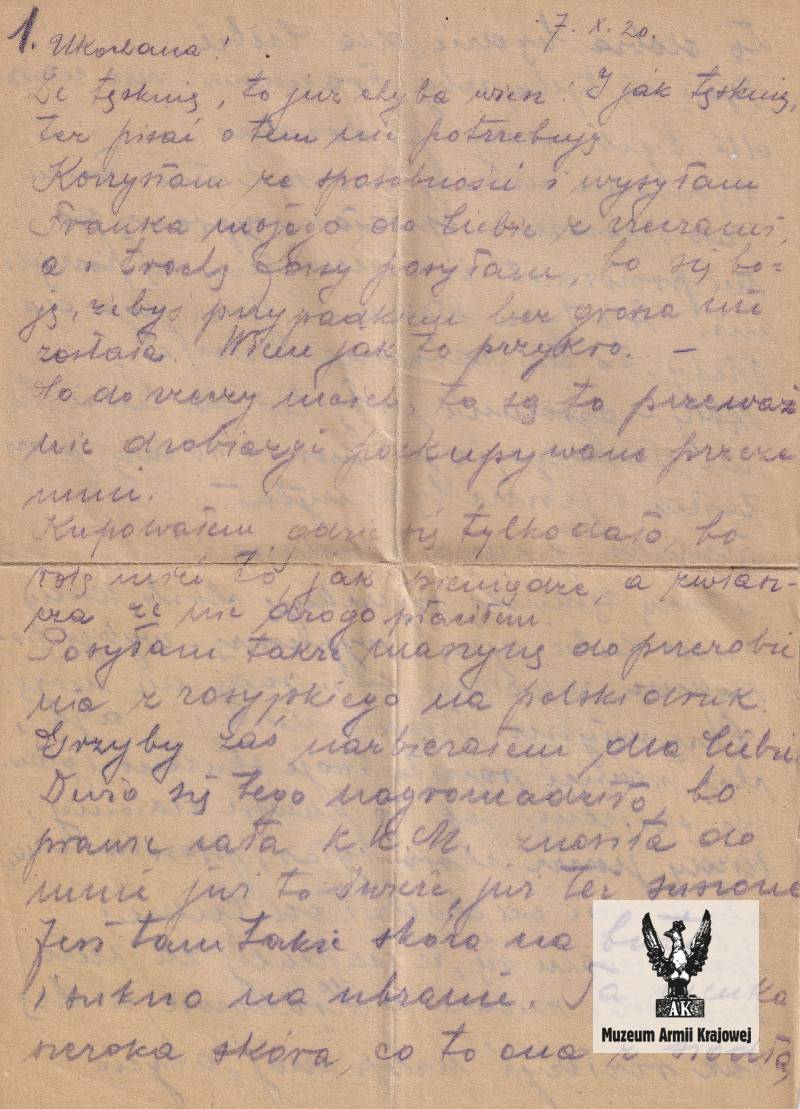 1.
7. X. 20.
Ukochana!
Że tęsknię, to już chyba wiesz! I jak tęsknię,
też pisać o tem nie potrzebuję
Korzystam ze sposobności i wysyłam
Franka mojego do Ciebie z rzeczami,
a i trochę forsy posyłam, bo się bo=
ję, żebyś przypadkiem bez grosza nie
została. Wiem jak to przykro. —
Co do rzeczy moich, to są to przeważ
nie drobiazgi pokupywane przeze
mnie.
Kupowałem gdzie się tylko dało, bo
wolę mieć to, jak pieniądze, a zwłasz-
cza że nie drogo płaciłem.
Posyłam także maszynę do przerobie
nia z rosyjskiego na polski druk.
Grzyby zaś nazbierałem dla Ciebie.
Dużo się tego nagromadziło, bo
prawie cała K.K.M. znosiła do
mnie już to świeże, już też suszone
Jest tam także skóra na
i sukno na ubranie. Ta
szeroka skóra, co to ona z siodła,
AK
Muzeum Armii Krajowej